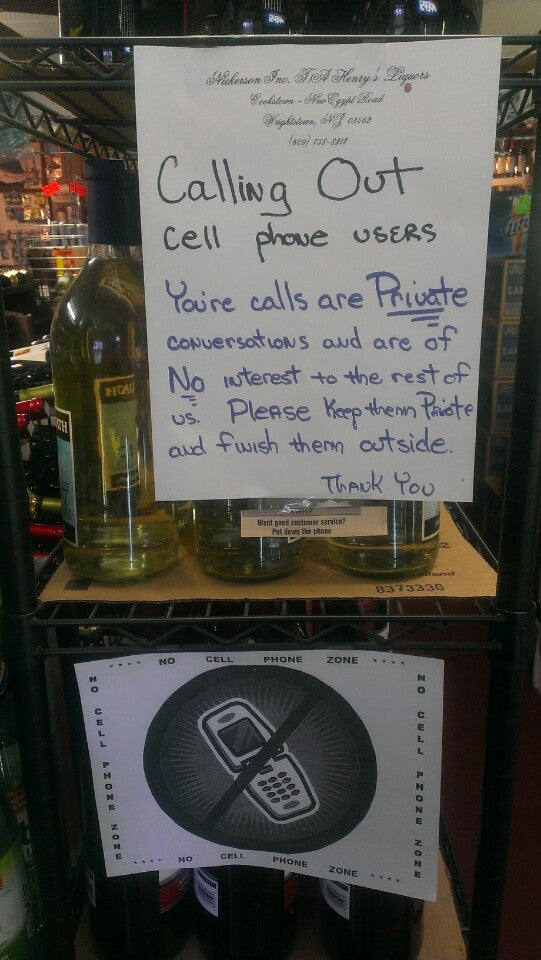 Nickerson Inc. T/A Henry's Liquors
Cookstown - New Egypt Road
Wrightstown, NJ 08562
Calling Out
cell phone users
You're calls are Private
conversations and are of
No interest to the rest of
us. Please Keep them Private
and finish them outside.
Thank You
Want good customer service?
Put down the phone
8373336
**** NO CELL PHONE ZONE ****
NO CELL PHONE ZONE
NO CELL PHONE ZONE
**** NO CELL PHONE ZONE ****